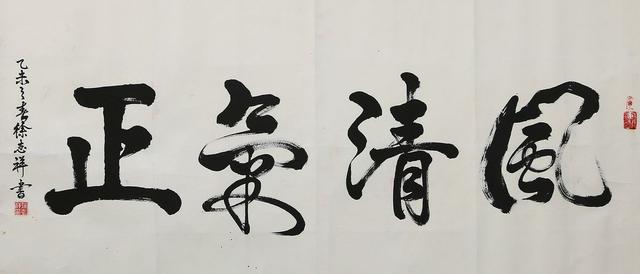 風清氣正
乙未之春徐志祥書